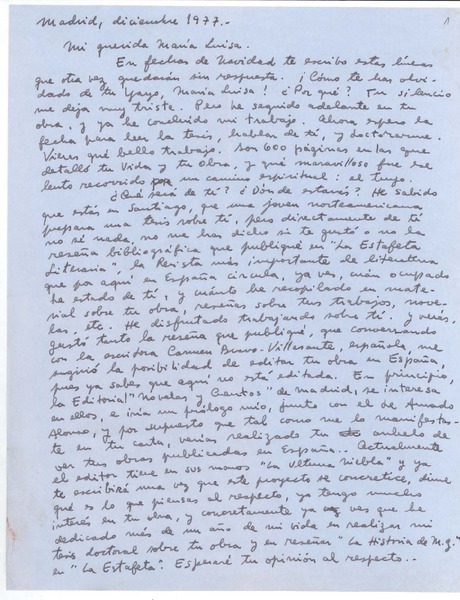 Madrid, diciembre 1977.-
1
Mi querida María Luisa.
En fechas de Navidad te escribo estas líneas
que otra vez quedarán sin respuesta. ¡Cómo te has olvi-
dado de tu Yayo, María Luisa! ¿Por qué? Tu silencio
me deja muy triste. Pero he seguido adelante en tu
obra, y ya he concluido mi trabajo. Ahora espero la
fecha para leer la tesis, hablar de tí, y doctorarme.
Vieras qué bello trabajo. Son 600 páginas en las que
detallo tu Vida y tu Obra, y qué maravilloso fue ese
lento recorrido por un camino espiritual: el tuyo.
¿Qué será de tí? ¿Dónde estarás? He sabido
que estás en Santiago, que una joven norteamericana
prepara una tesis sobre tí, pero directamente de tí
no sé nada, no me has dicho si te gustó o no la
reseña bibliográfica que publiqué en "La Estafeta
Literaria", la Revista más importante de literatura
que por aquí en España circula, ya ves, cuán ocupado
he estado de tí, y cuánto he recopilado en mate-
rial sobre tu obra, reseñas sobre tus trabajos, nove-
las, etc. He disfrutado trabajando sobre tí. Y verás,
gustó tanto la reseña que publiqué, que conversando
con la escritora Carmen Bravo-Villasante, española me
sugirió la posibilidad de editar tu obra en España,
pues ya sabes que aquí no está editada. En principio,
la Editorial "Novelas y Cuentos" de Madrid, se interesa
en ellos, e iría un prólogo mío, junto con el de Amado
Alonso, y por supuesto que tal como me lo manifestas-
te en tu carta, verías realizado tu anhelo de
ver tus obras publicadas en España.. Actualmente
el editor tiene en sus manos "La Ultima Niebla" y ya
te escribirá una vez que este proyecto se concretice, dime
qué es lo que piensas al respecto, yo tengo mucho
interés en tu obra, y concretamente ya ves que he
dedicado más de un año de mi vida en realizar mi
tesis doctoral sobre tu obra y en reseñar "La Historia de M.G."
en "La Estafeta". Esperaré tu opinión al respecto..